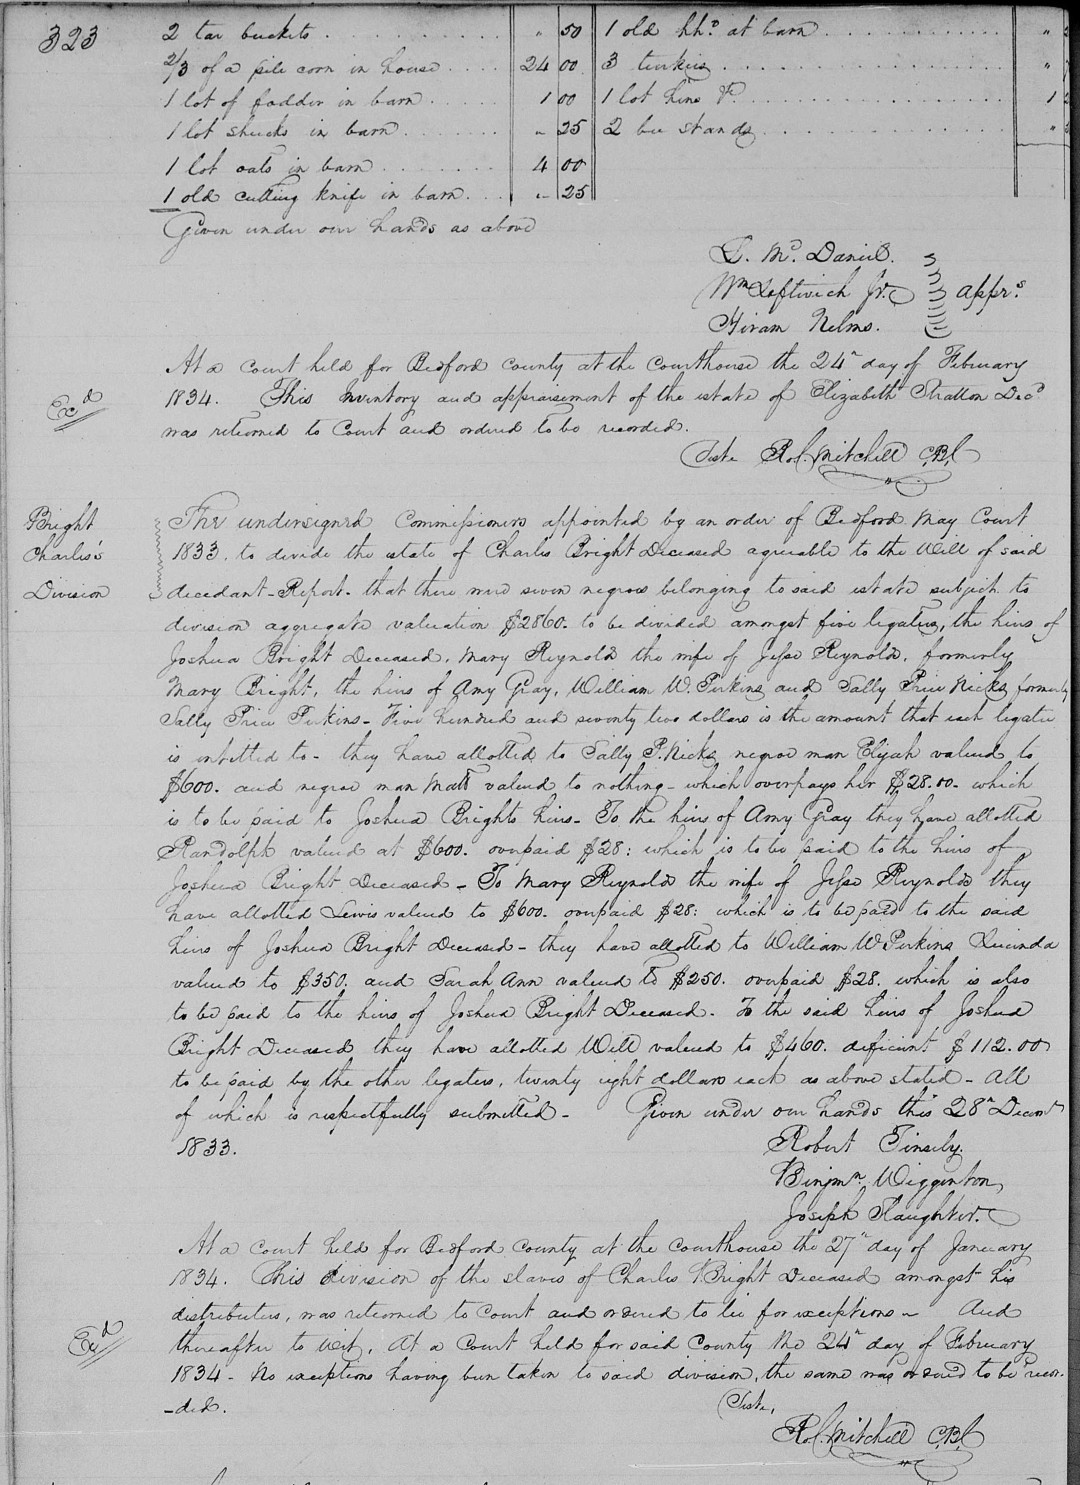 323
2 tar buckets . . . . . . . . . . " 50
2/3 of a pile corn in house . . . . 24 00
1 lot of fodder in barn . . . . . 1 00
1 lot shucks in barn . . . . . . . " 25
1 lot oats in barn . . . . . . . 4 00
1 old cutting knife in barn . . . " 25
1 old hhd. at barn . . . . . . . . . . "
3 turkies . . . . . . . . . . . . . "
1 lot hens &c. . . . . . . . . . . . 1
2 bee stands . . . . . . . . . . . "
Given under our hands as above
McDaniel.
Wm Leftwich Jr. apprs.
Hiram Nelms.
At a court held for Bedford County at the courthouse the 24th day of February
Exd
1834. This Inventory and appraisement of the estate of Elizabeth Stratton Decd
was returned to Court and ordered to be recorded.
Teste Ro. C. Mitchell C.B.C
Bright
Charles's
Division
The undersigned Commissioners appointed by an order of Bedford May Court
1833. to divide the estate of Charles Bright Deceased agreeable to the Will of said
decedant - Report - that there were seven negroes belonging to said estate subject to
division aggregate valuation $2860. to be divided amongst five legatees, the heirs of
Joshua Bright Deceased. Mary Reynolds the wife of Jesse Reynolds. formerly
Mary Bright, the heirs of Amy Gray, William W. Perkins and Sally Price Nicks formerly
Sally Price Perkins - Five hundred and seventy two dollars is the amount that each legatee
is intitled to - they have allotted to Sally P. Nicks negroe man Elijah valued to
$600. and negroe man Matt valued to nothing - which overpays her $28.00. which
is to be paid to Joshua Brights heirs - To the heirs of Amy Gray they have allotted
Randolph valued at $600. overpaid $28: which is to be paid to the heirs of
Joshua Bright Deceased - To Mary Reynolds the wife of Jesse Reynolds they
have allotted Lewis valued to $600. overpaid $28: which is to be paid to the said
heirs of Joshua Bright Deceased - they have allotted to William W Perkins Lucinda
valued to $350. and Sarah Ann valued to $250. overpaid $28. which is also
to be paid to the heirs of Joshua Bright Deceased. To the said heirs of Joshua
Bright Deceased they have allotted Will valued to $460. deficient $112.00
to be paid by the other legatees, twenty eight dollars each as above stated - All
of which is respectfully submitted - Given under our hands this 28th Decemr
1833.
Robert Tinsley.
Benjmn. Wigginton,
Joseph Slaughter.
At a court held for Bedford County at the courthouse the 27th day of January
1834. This division of the slaves of Charles Bright Deceased amongst his
distributees, was returned to court and ordered to lie for exceptions - And
Exd
thereafter to wit, At a Court held for said County the 24th day of February
1834 - No exceptions having been taken to said division, the same was ordered to be recor-
-ded.
Teste,
Ro. C. Mitchell C.B.C